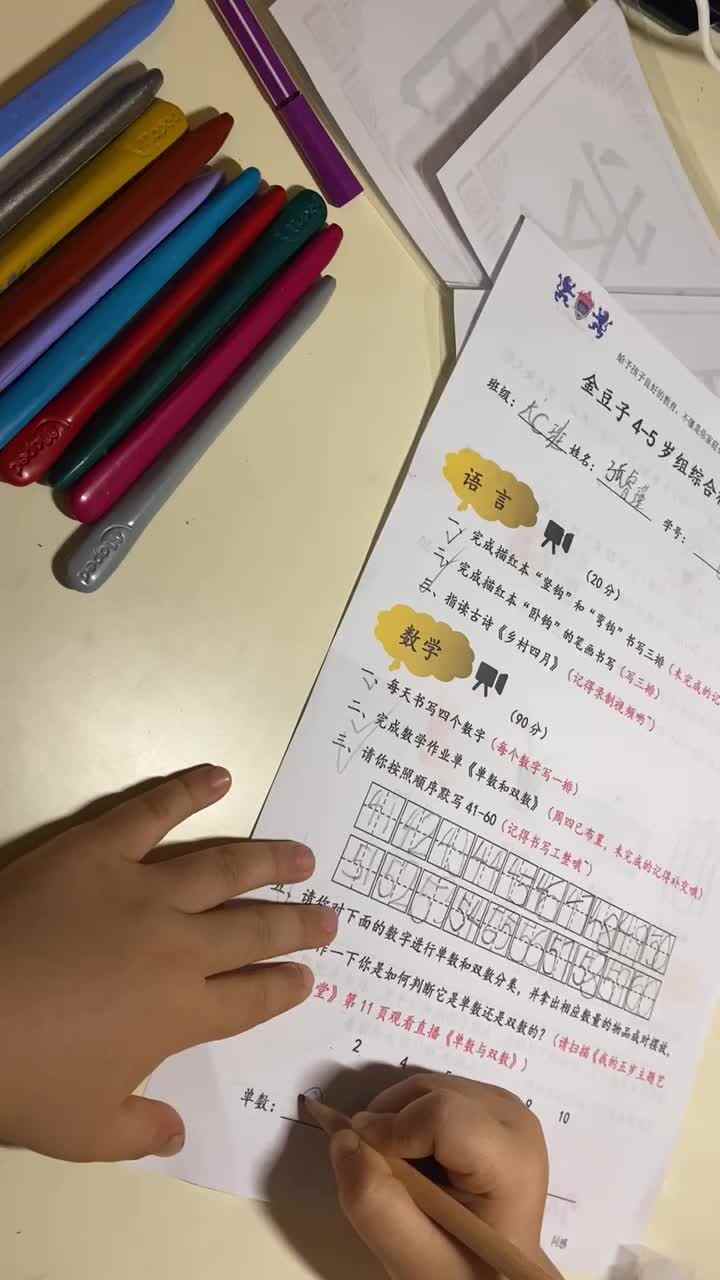 给予孩子良好的教育,不懂是你家庭
金豆子 4-5 岁组综合
班级: KC班 姓名: 学号:
语言
(20分)
一、完成描红本“竖钩”和“弯钩”书写三排(未完成的记
二、完成描红本“卧钩”的笔画书写(写三排)
三、指读古诗《乡村四月》(记得录制视频哟~)
数学
(90分)
一、每天书写四个数字(每个数字写一排)
二、完成数学作业单《单数和双数》(周四已布置,未完成的记得补交哦)
三、请你按照顺序默写 41-60(记得书写工整哦~)
41 42 43 44 45 46 47 48 49 50
51 52 53 54 55 56 57 58 59 60
五、请你对下面的数字进行单数和双数分类,并拿出相应数量的物品成对摆放,
作一下你是如何判断它是单数还是双数的?(请扫描《我的正岁主题艺
堂》第 11 页观看直播《单数与双数》)
2 4 9 10
单数: